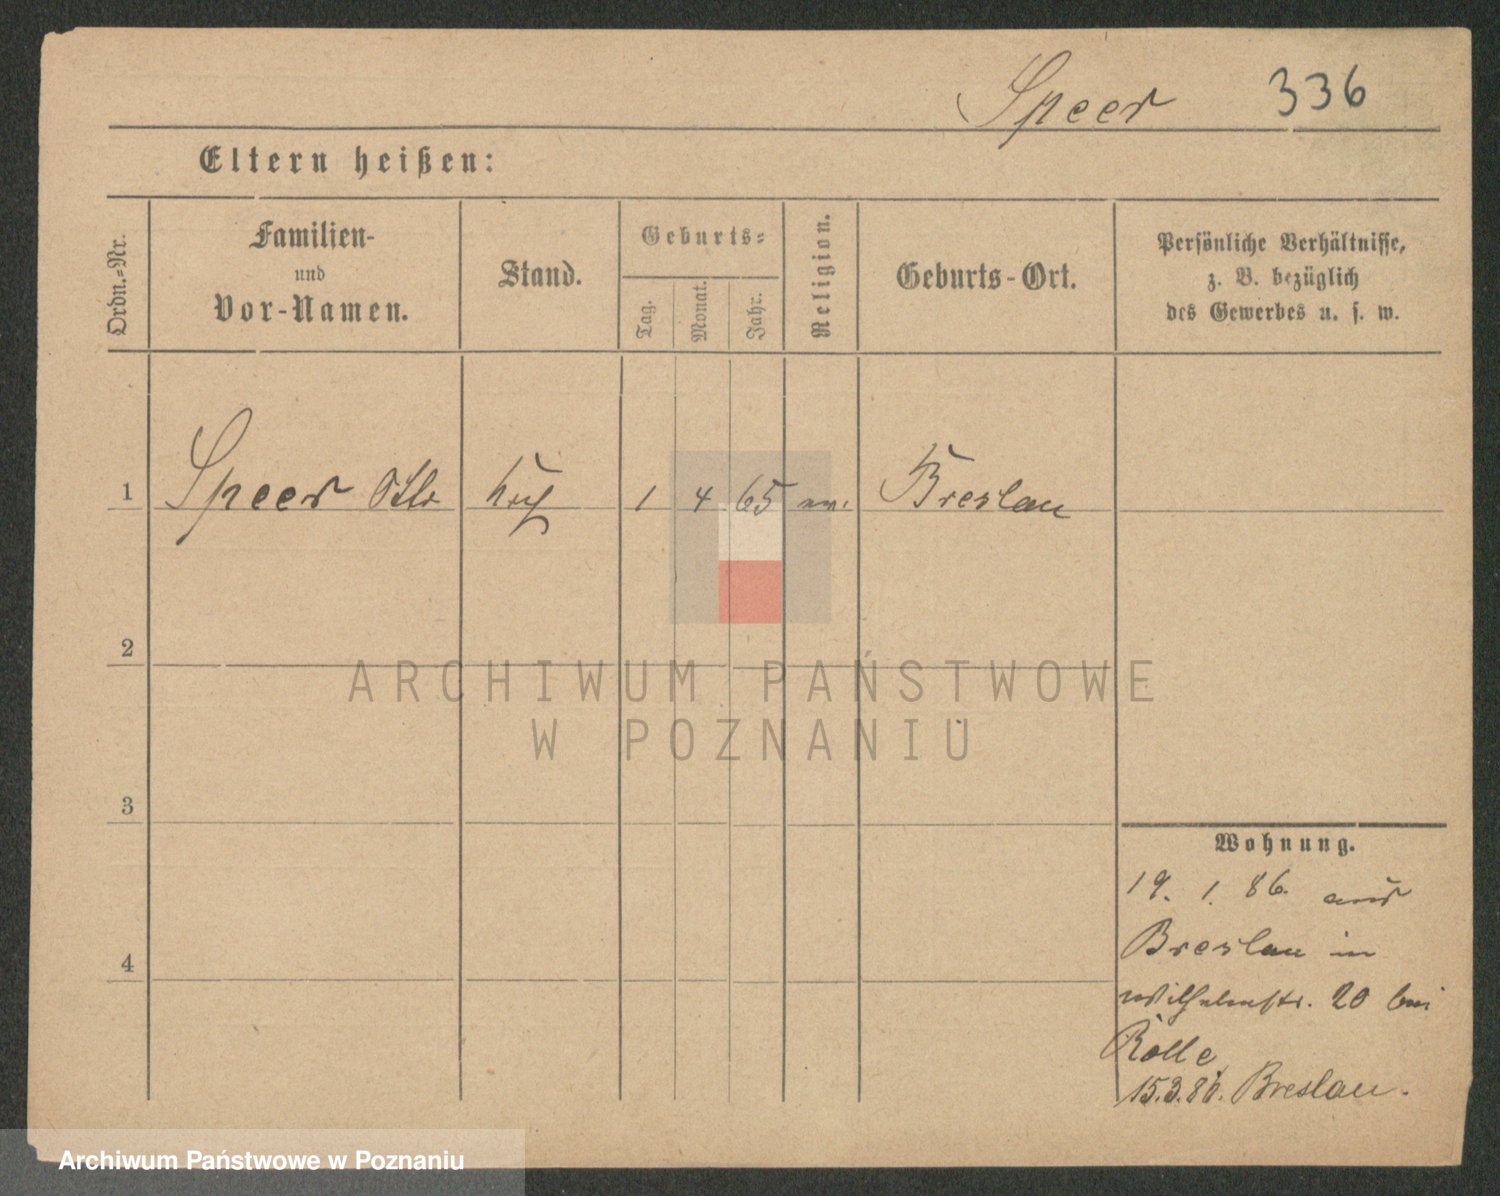 Speer 336
Eltern heißen:
Ordn.-Nr.
Familien-
und
Vor-Namen.
Stand.
Geburts-
Tag.
Monat.
Jahr.
Religion.
Geburts-Ort.
Persönliche Verhältnisse,
z. B. bezüglich
des Gewerbes u. s. w.
1 Speer Otto 1 4 65 ev. Breslau
2
3
4
ARCHIWUM PAŃSTWOWE
W POZNANIU
Wohnung.
19. 1. 86. aus
Breslau in
Wilhelmstr. 20 bei
Rölle
15.3.86. Breslau.
Archiwum Państwowe w Poznaniu